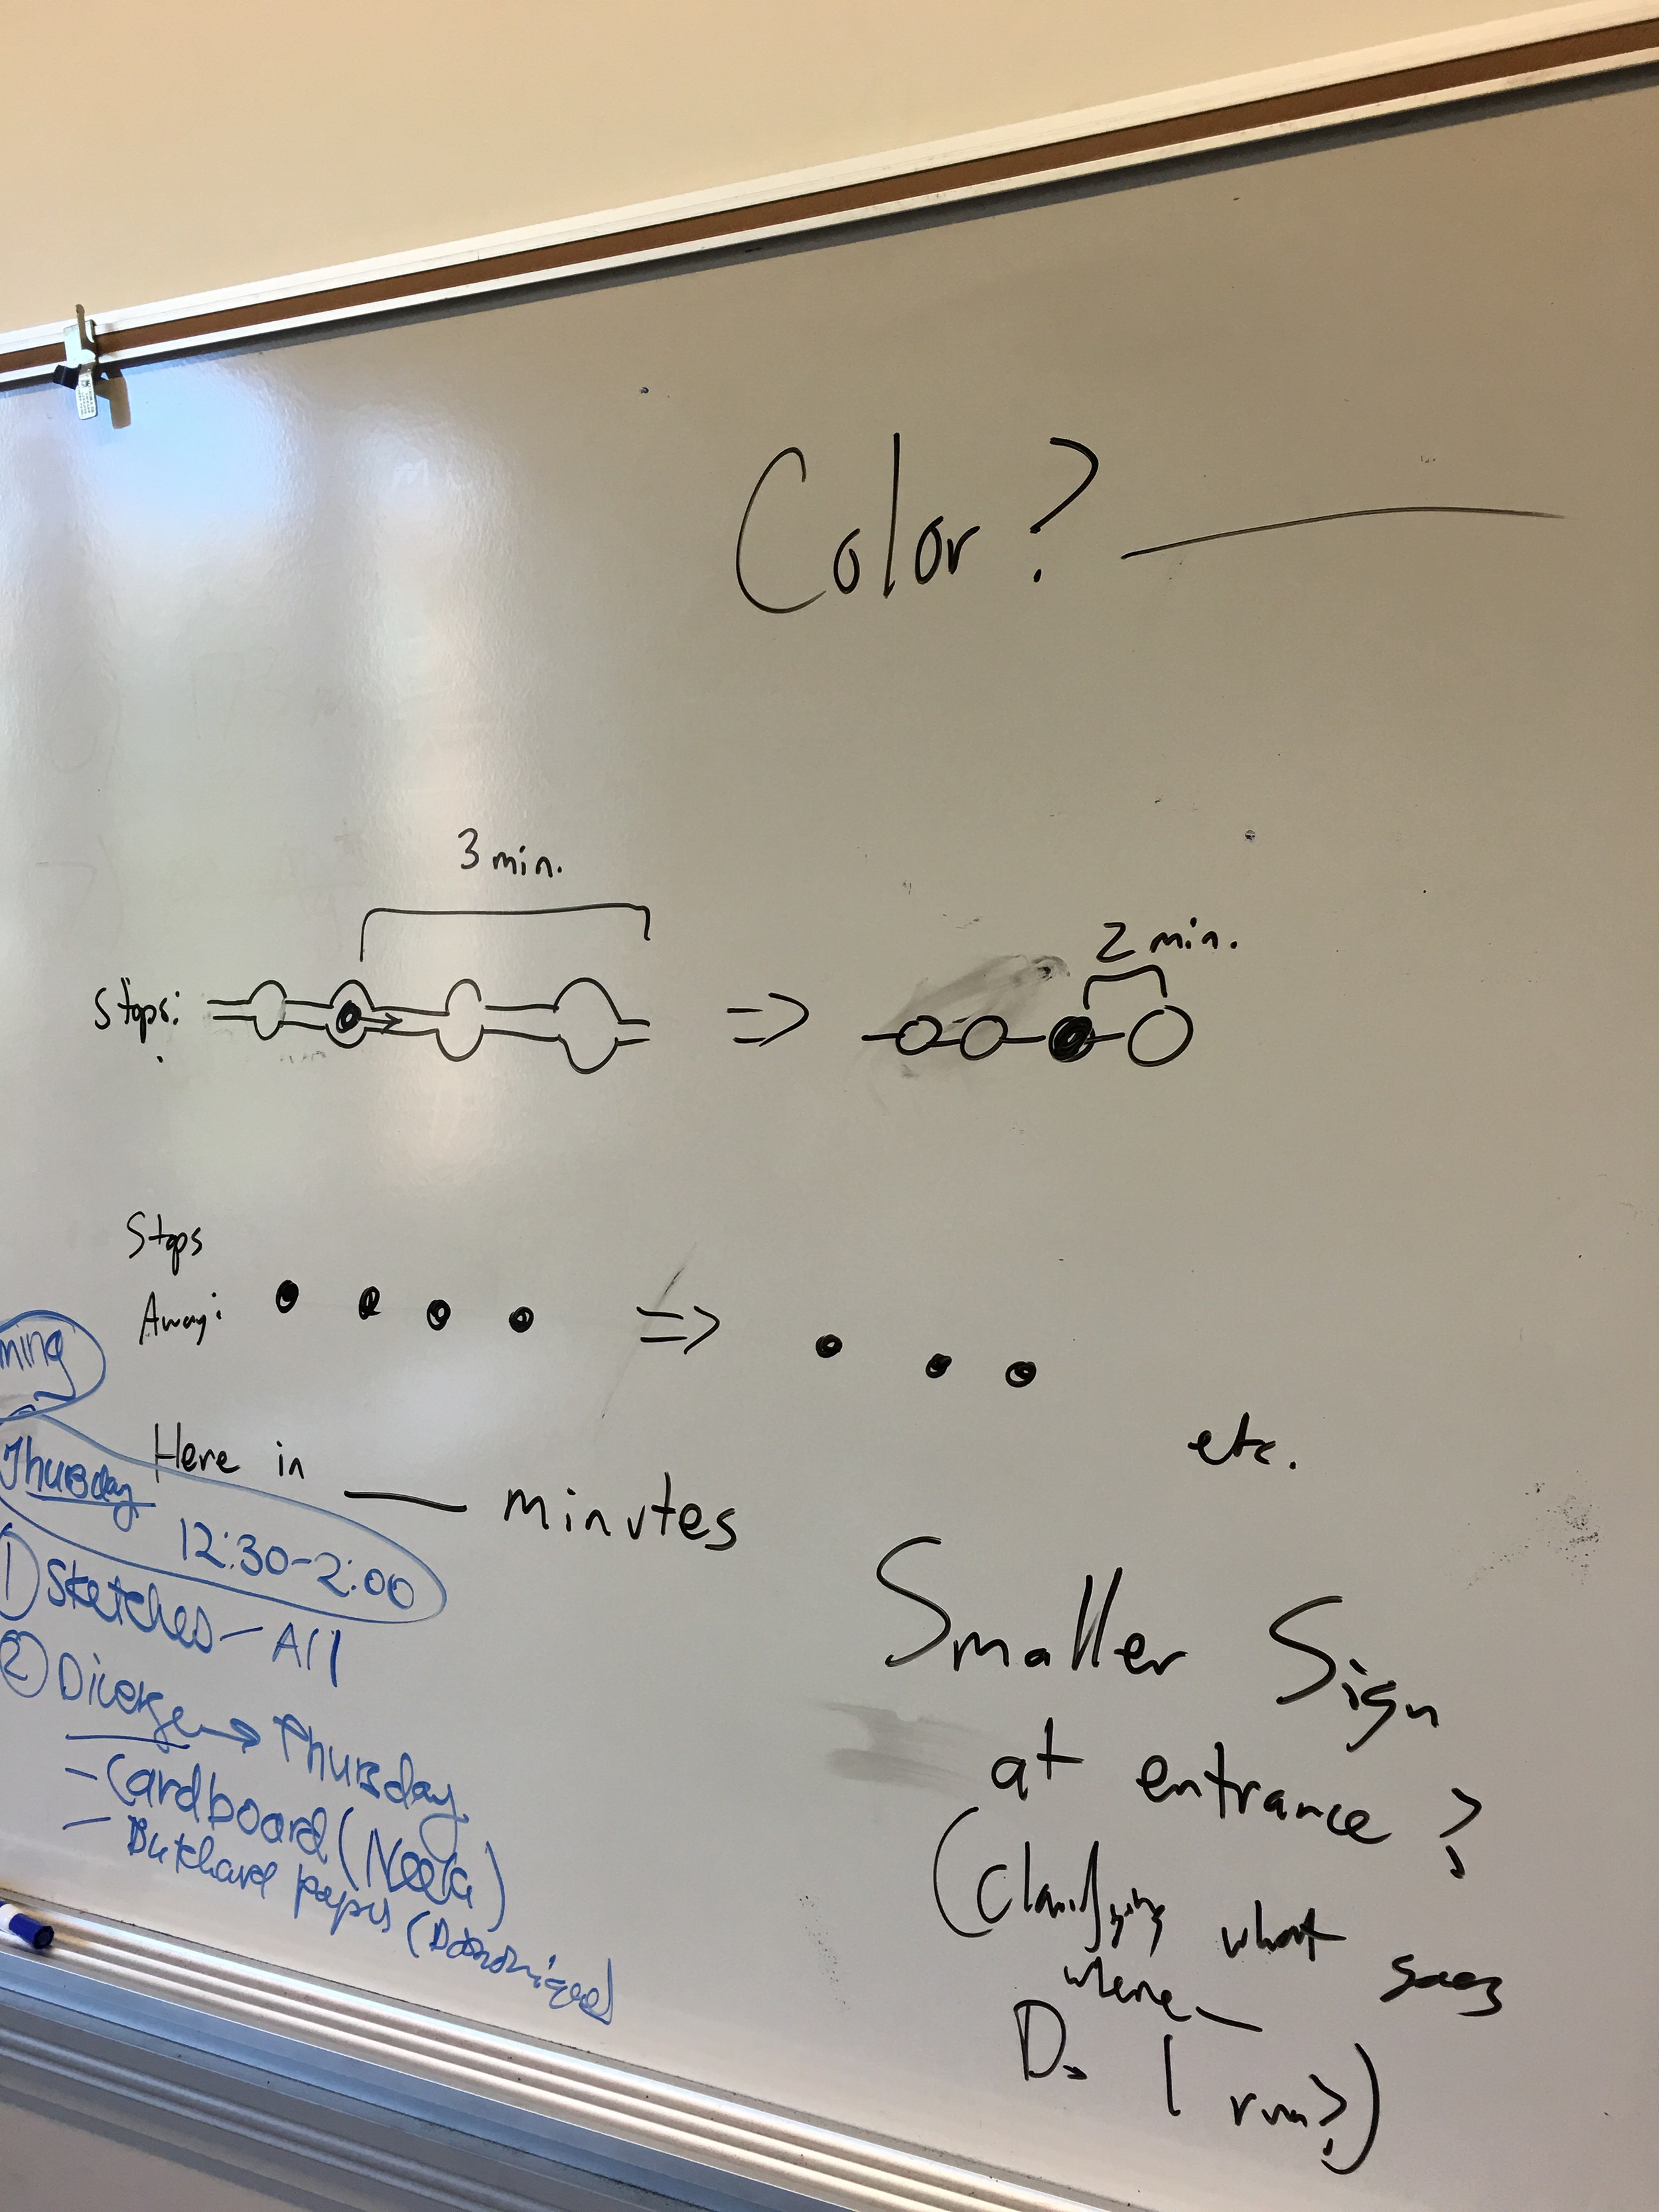 Color?
3 min.
2 min.
Stops: => 
Stops
Away: =>
etc.
Here in ___ minutes
Smaller Sign
at entrance?
(Clarifying what goes
where—
Do I run?)
ming
Thursday
12:30-2:00
1) Sketches - All
2) Diverge → Thursday
- Cardboard (
- Butchard paper (